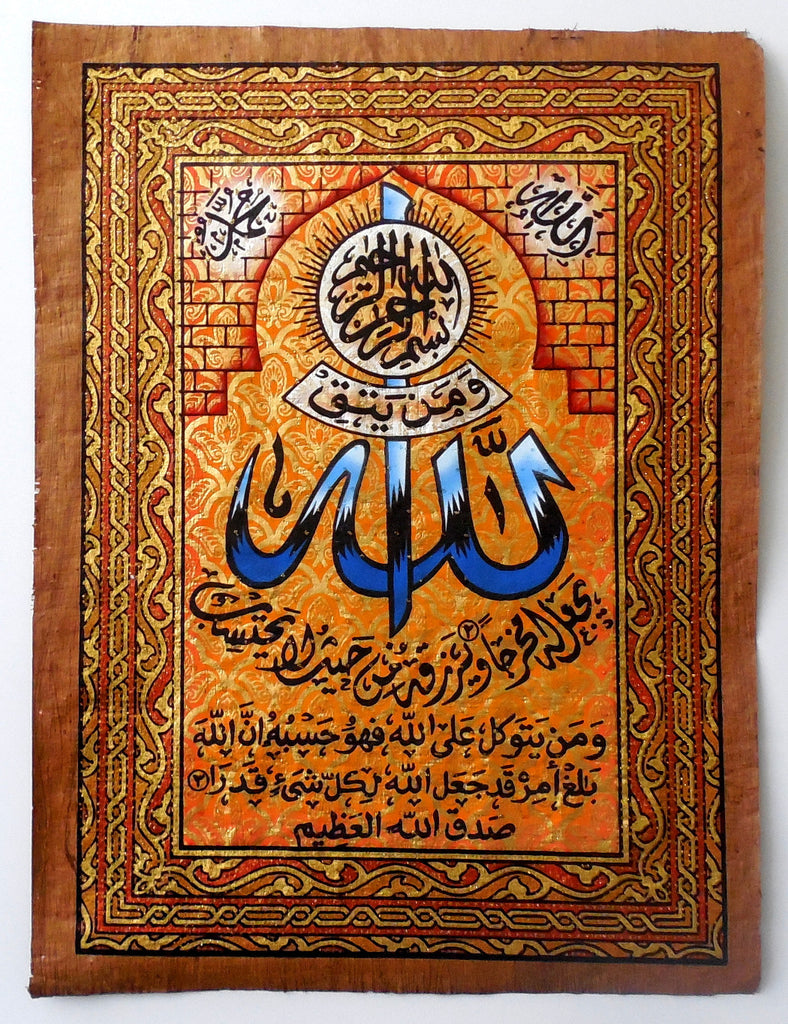 الله
محمد
بسم الله الرحمن الرحيم
وَمَن يَتَقِ
الله
يجعل له مخرجاً ٢ ويرزقه من حيث لا يحتسب
وَمَن يَتَوَكل عَلَى الله فَهُوَ حَسْبُهُ انَّ اللَّهَ
بَلغُ أمرِهْ قَد جَعَل الله لِكلِّ شَىءٍ قَدرَا ٣
صَدَقَ الله العَظِيم